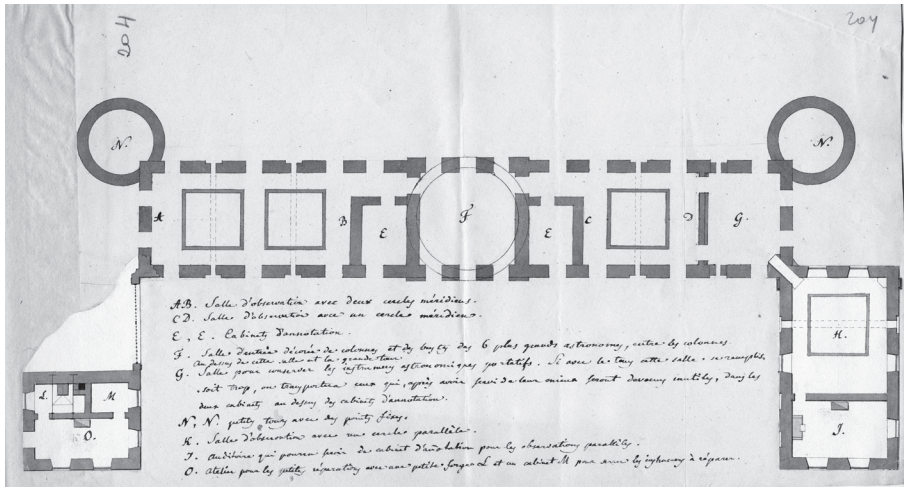 204
204
N.
N.
A
B
E
F
E
C
D
G.
H.
L
M
O.
I.
AB. Salle d'observation avec deux cercles méridiens.
CD. Salle d'observation avec un cercle méridien.
E, E. Cabinets d'annotation.
F. Salle d'entrée décorée de colonnes et des bustes des 6 plus grands astronomes, entre les colonnes.
Au dessus de cette salle est la grande tour.
G. Salle pour conserver les instrumens astronomiques portatifs. Si avec le tems cette salle se remplit
soit trop, on transportera ceux qui, après avoir servi de leur mieux seront devenus inutiles, dans les
deux cabinets au dessus des cabinets d'annotation.
N, N. petites tours avec des points fixes.
H. Salle d'observation avec un cercle parallèle.
I. Auditoire qui pourra servir de cabinet d'annotation pour les observations parallèles.
O. Atelier pour les petites réparations avec une petite forge L et un cabinet M pour à réparer.